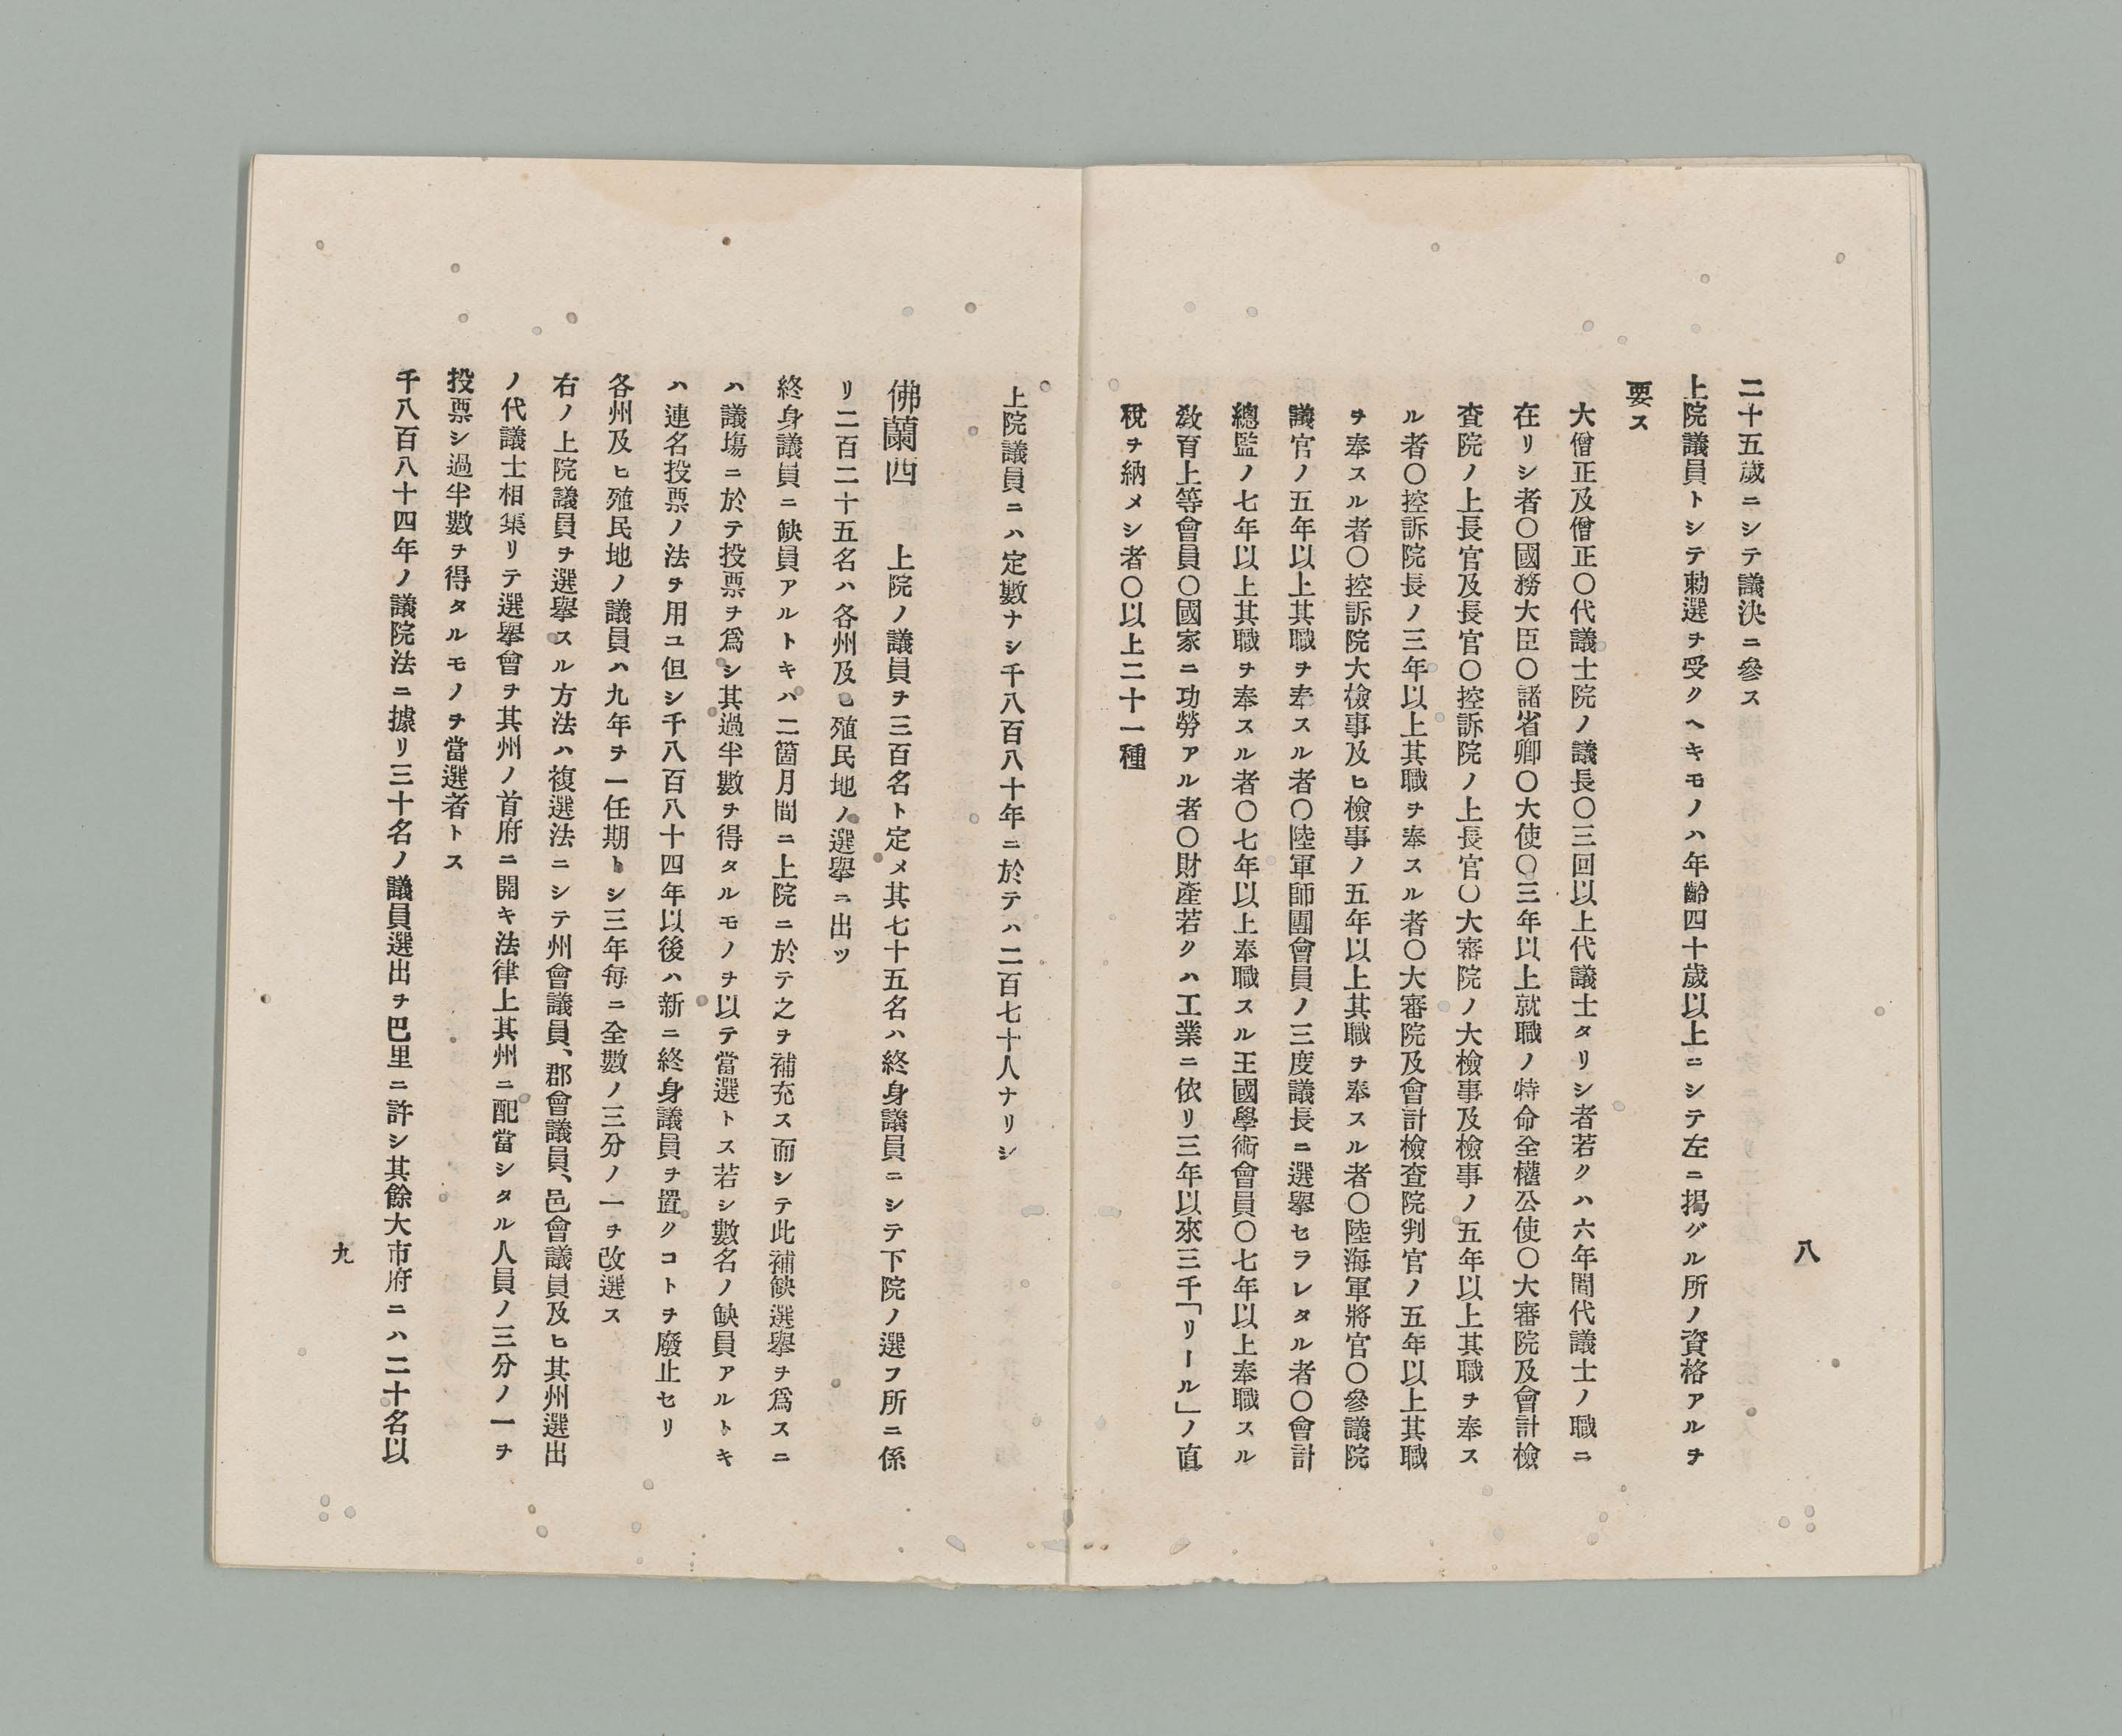 八
二十五歲ニシテ議決ニ參ス
上院議員トシテ勅選ヲ受クヘキモノハ年齡四十歲以上ニシテ左ニ揭グル所ノ資格アルヲ
要ス
大僧正及僧正〇代議士院ノ議長〇三回以上代議士タリシ者若クハ六年間代議士ノ職ニ
在リシ者〇國務大臣〇諸省卿〇大使〇三年以上就職ノ特命全權公使〇大審院及會計檢
查院ノ上長官及長官〇控訴院ノ上長官〇大審院ノ大檢事及檢事ノ五年以上其職ヲ奉ス
ル者〇控訴院長ノ三年以上其職ヲ奉スル者〇大審院及會計檢查院判官ノ五年以上其職
ヲ奉スル者〇控訴院大檢事及ヒ檢事ノ五年以上其職ヲ奉スル者〇陸海軍將官〇參議院
議官ノ五年以上其職ヲ奉スル者〇陸軍師團會員ノ三度議長ニ選擧セラレタル者〇會計
總監ノ七年以上其職ヲ奉スル者〇七年以上奉職スル王國學術會員〇七年以上奉職スル
敎育上等會員〇國家ニ功勞アル者〇財產若クハ工業ニ依リ三年以來三千「リール」ノ直
稅ヲ納メシ者〇以上二十一種
上院議員ニハ定數ナシ千八百八十年ニ於テハ二百七十人ナリシ
佛蘭西 上院ノ議員ヲ三百名ト定メ其七十五名ハ終身議員ニシテ下院ノ選フ所ニ係
リ二百二十五名ハ各州及ヒ殖民地ノ選擧ニ出ツ
終身議員ニ缺員アルトキハ二箇月間ニ上院ニ於テ之ヲ補充ス而シテ此補缺選擧ヲ爲スニ
ハ議塲ニ於テ投票ヲ爲シ其過半數ヲ得タルモノヲ以テ當選トス若シ數名ノ缺員アルトキ
ハ連名投票ノ法ヲ用ユ但シ千八百八十四年以後ハ新ニ終身議員ヲ置クコトヲ廢止セリ
各州及ヒ殖民地ノ議員ハ九年ヲ一任期トシ三年每ニ全數ノ三分ノ一ヲ改選ス
右ノ上院議員ヲ選擧スル方法ハ複選法ニシテ州會議員、郡會議員、邑會議員及ヒ其州選出
ノ代議士相集リテ選擧會ヲ其州ノ首府ニ開キ法律上其州ニ配當シタル人員ノ三分ノ一ヲ
投票シ過半數ヲ得タルモノヲ當選者トス
千八百八十四年ノ議院法ニ據リ三十名ノ議員選出ヲ巴里ニ許シ其餘大市府ニハ二十名以
九